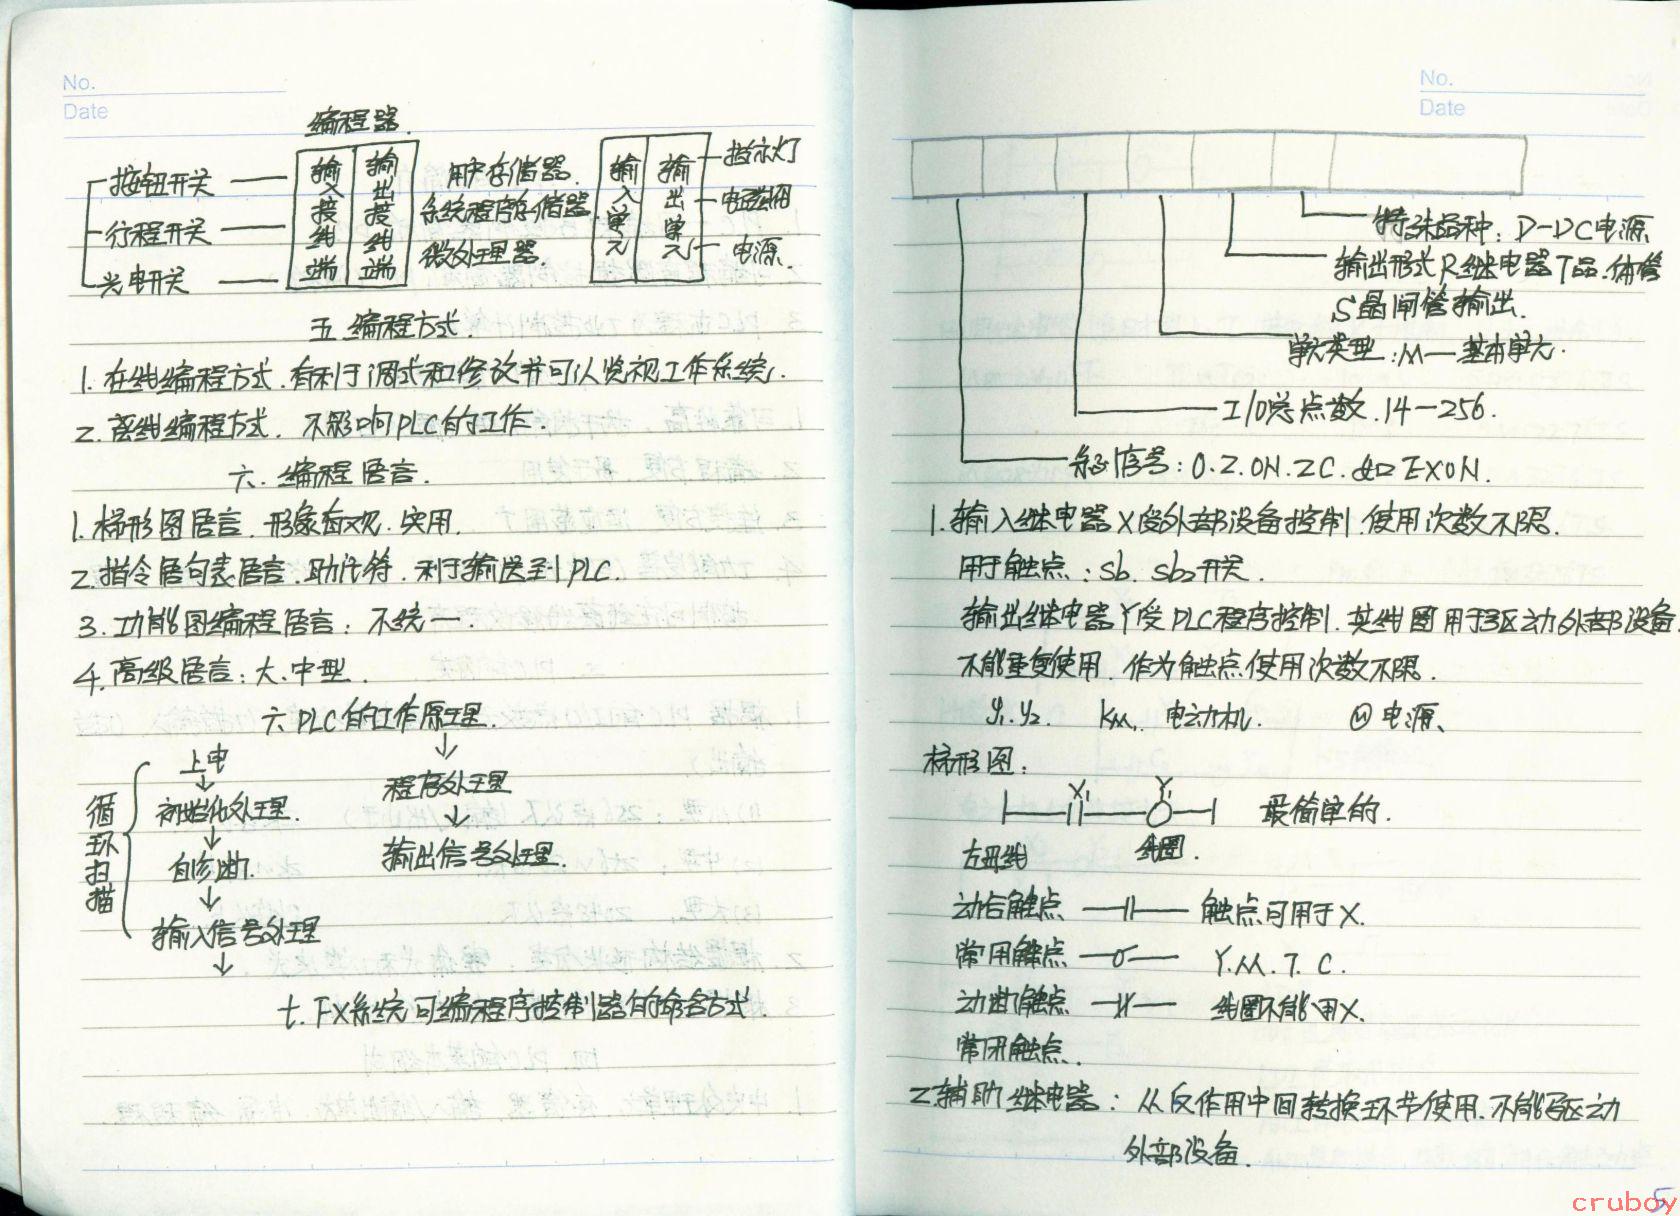 No.
Date
编程器.
按钮开关
行程开关
光电开关
输入接线端
输出接线端
用户存储器.
系统程序存储器.
微处理器.
输入单元
输出单元
指示灯
电磁阀
电源.
五.编程方式.
1. 在线编程方式.有利于调试和修改并可以监视工作系统.
2. 离线编程方式. 不影响PLC的工作.
六.编程语言.
1. 梯形图语言.形象直观.实用.
2. 指令语句表语言.助记符.利于输送到PLC.
3. 功能图编程语言:不统一.
4. 高级语言:大.中型.
六.PLC的工作原理.
循环扫描
上电
↓
初始化处理.
↓
自诊断.
↓
输入信号处理
↓
↓
程序处理
↓
输出信号处理.
七.FX系统可编程序控制器的命名方式.
No.
Date
特殊品种:D-DC电源
输出形式R继电器T晶.体管
S晶闸管输出.
单元类型:M—基本单元.
I/O总点数.14-256.
系列信号:0.2.0N.2C.如EX0N.
1. 输入继电器X受外部设备控制.使用次数不限.
用于触点:sb. sb2开关.
输出继电器Y受PLC程序控制.其线圈用于驱动外部设备.
不能重复使用.作为触点使用次数不限.
y1.y2. KM. 电动机. M 电源、
梯形图:
X1 Y1
最简单的.
左母线 线圈.
动合触点 触点可用于X.
常用触点 Y.M.T.C.
动断触点 线圈不能用X.
常闭触点.
2.辅助继电器:从反作用中间转换环节使用.不能驱动
外部设备.
5
cruboy